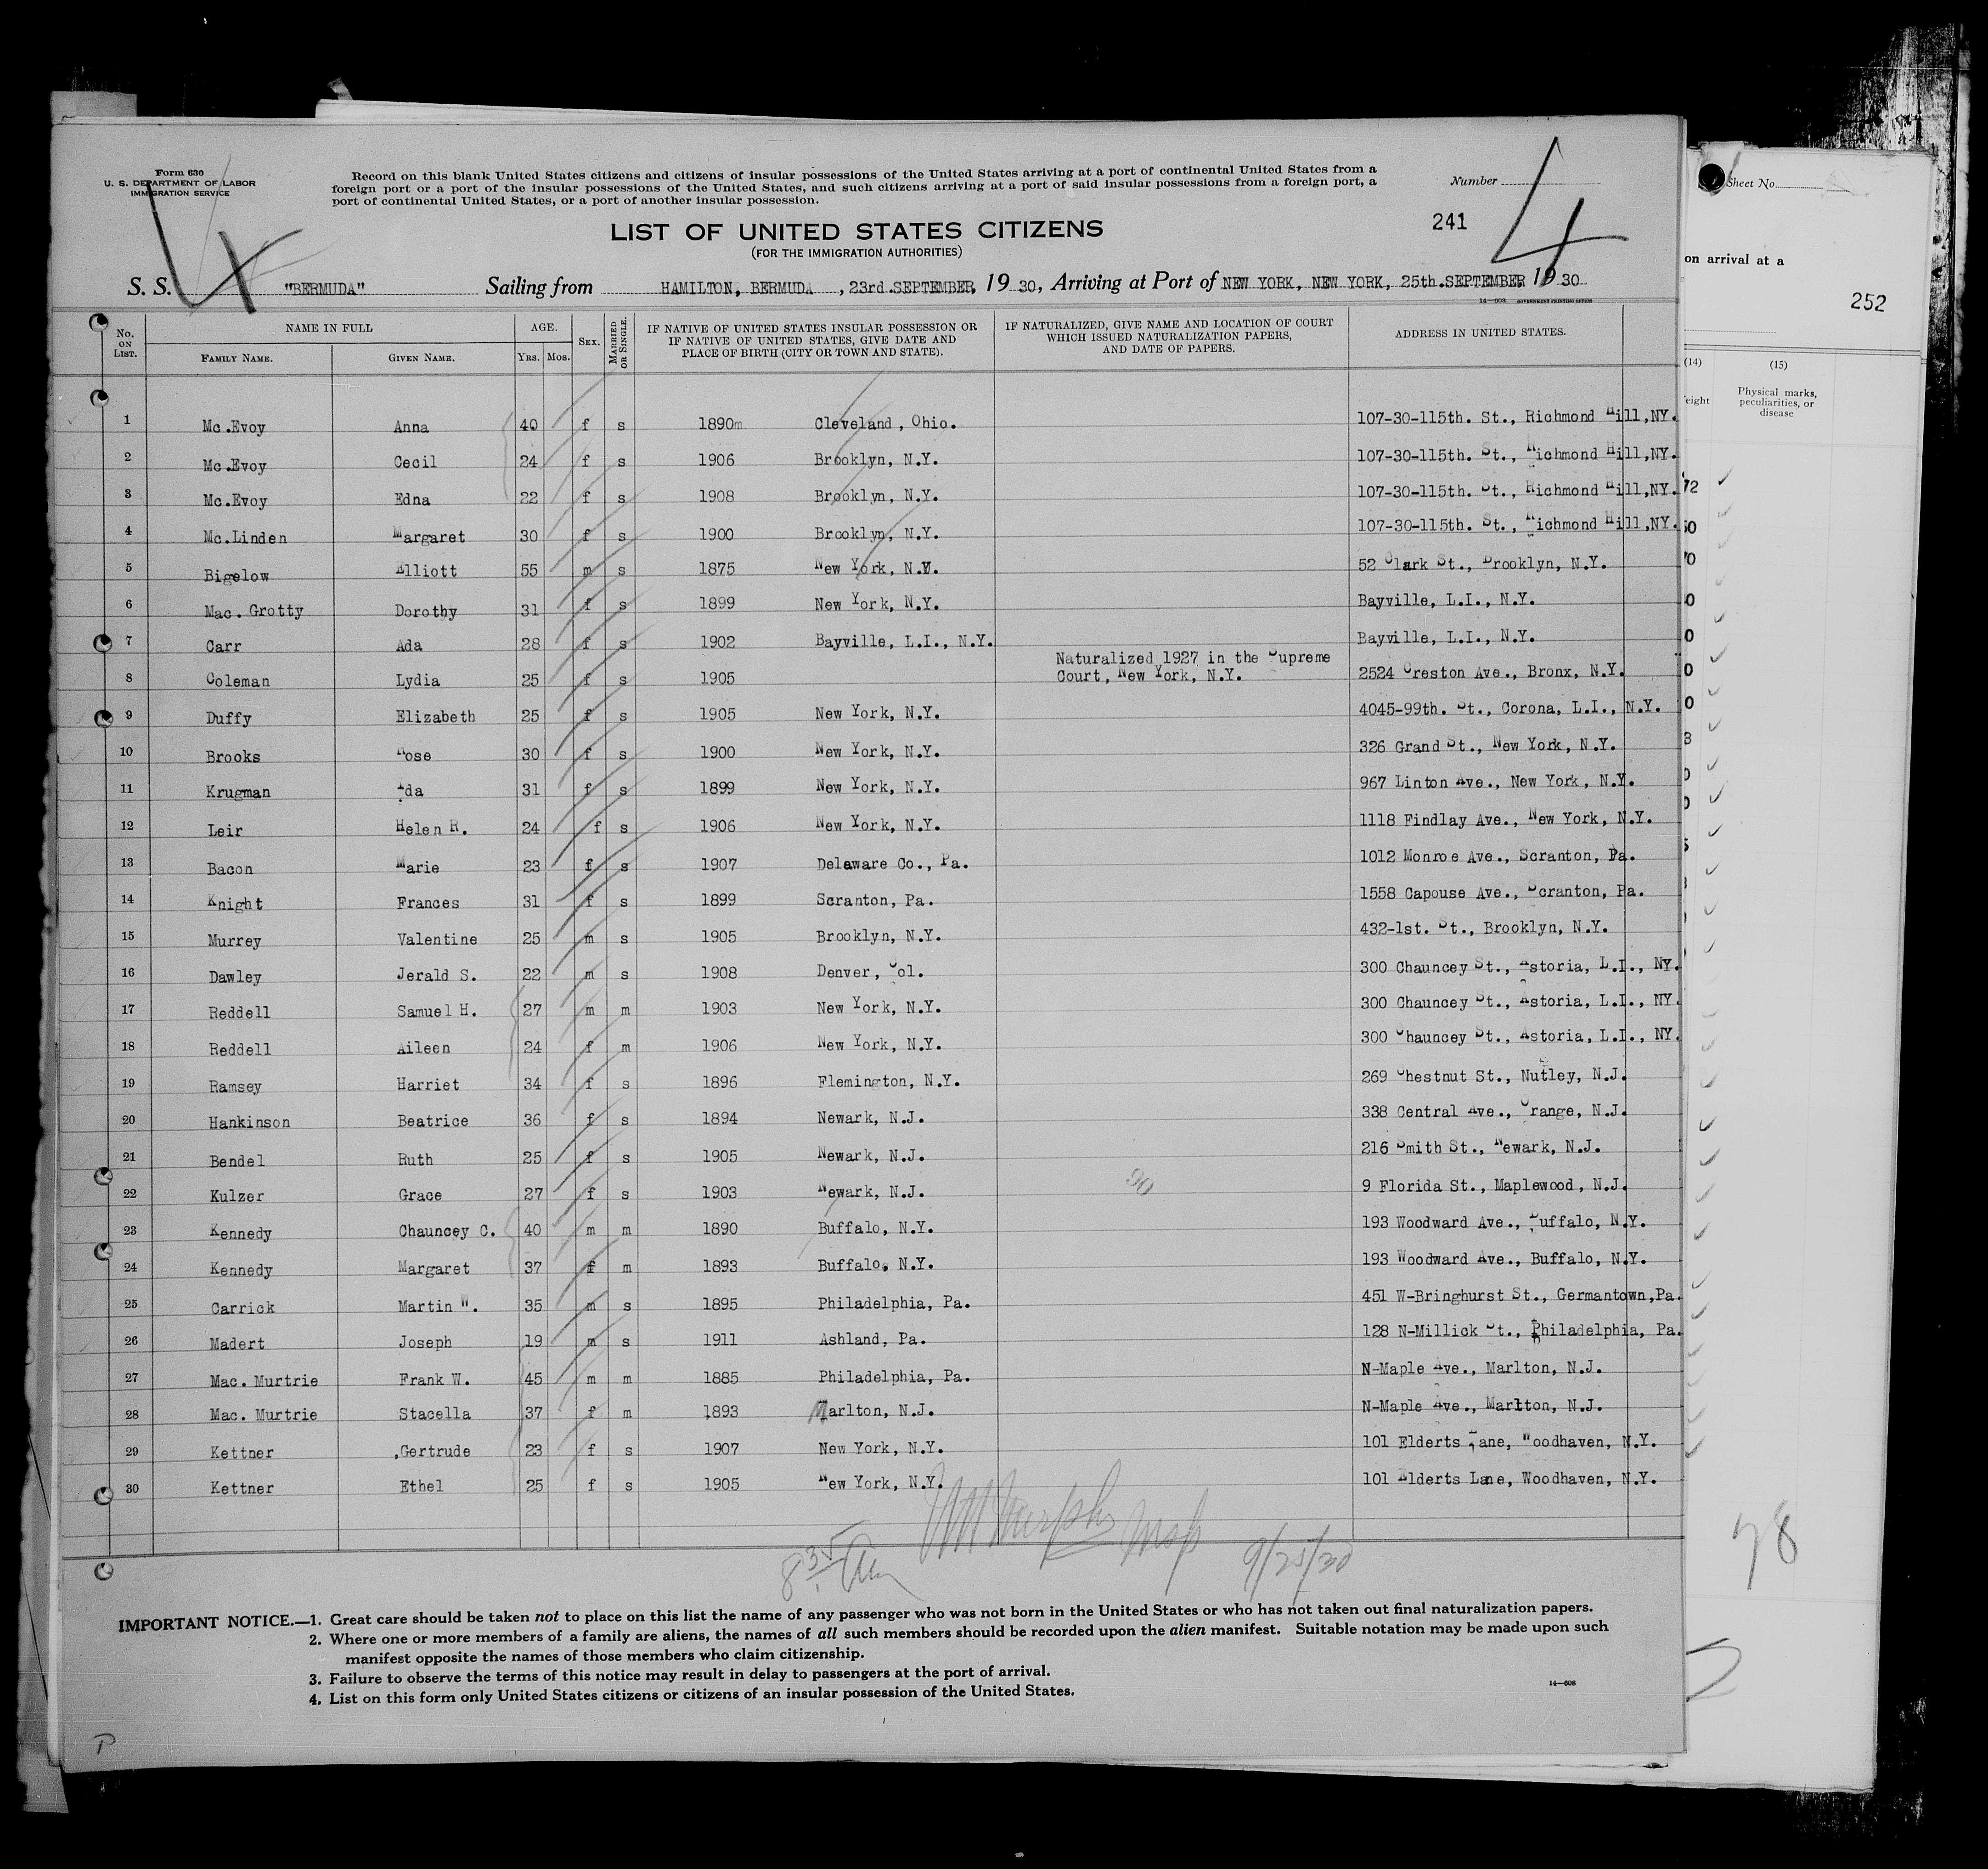 Form 630
U. S. DEPARTMENT OF LABOR
IMMIGRATION SERVICE
Record on this blank United States citizens and citizens of insular possessions of the United States arriving at a port of continental United States from a
foreign port or a port of the insular possessions of the United States, and such citizens arriving at a port of said insular possessions from a foreign port, a
port of continental United States, or a port of another insular possession.
Number
4
241
LIST OF UNITED STATES CITIZENS
(FOR THE IMMIGRATION AUTHORITIES)
S. S. "BERMUDA" Sailing from HAMILTON, BERMUDA, 23rd.SEPTEMBER, 1930, Arriving at Port of NEW YORK, NEW YORK, 25th.SEPTEMBER 1930
No. ON LIST. NAME IN FULL FAMILY NAME. GIVEN NAME. AGE. YRS. MOS. SEX. MARRIED OR SINGLE. IF NATIVE OF UNITED STATES INSULAR POSSESSION OR IF NATIVE OF UNITED STATES, GIVE DATE AND PLACE OF BIRTH (CITY OR TOWN AND STATE). IF NATURALIZED, GIVE NAME AND LOCATION OF COURT WHICH ISSUED NATURALIZATION PAPERS, AND DATE OF PAPERS. ADDRESS IN UNITED STATES.
1 Mc.Evoy Anna 40 f s 1890m Cleveland, Ohio. 107-30-115th. St., Richmond Hill,NY.
2 Mc.Evoy Cecil 24 f s 1906 Brooklyn, N.Y. 107-30-115th. St., Richmond Hill,NY.
3 Mc.Evoy Edna 22 f s 1908 Brooklyn, N.Y. 107-30-115th. St., Richmond Hill,NY.
4 Mc.Linden Margaret 30 f s 1900 Brooklyn, N.Y. 107-30-115th. St., Richmond Hill,NY.
5 Bigelow Elliott 55 m s 1875 New York, N.Y. 52 Clark St., Brooklyn, N.Y.
6 Mac. Grotty Dorothy 31 f s 1899 New York, N.Y. Bayville, L.I., N.Y.
7 Carr Ada 28 f s 1902 Bayville, L.I., N.Y. Bayville, L.I., N.Y.
8 Coleman Lydia 25 f s 1905 Naturalized 1927 in the Supreme Court, New York, N.Y. 2524 Creston Ave., Bronx, N.Y.
9 Duffy Elizabeth 25 f s 1905 New York, N.Y. 4045-99th. St., Corona, L.I., N.Y.
10 Brooks Rose 30 f s 1900 New York, N.Y. 326 Grand St., New York, N.Y.
11 Krugman Ida 31 f s 1899 New York, N.Y. 967 Linton Ave., New York, N.Y.
12 Leir Helen R. 24 f s 1906 New York, N.Y. 1118 Findlay Ave., New York, N.Y.
13 Bacon Marie 23 f s 1907 Delaware Co., Pa. 1012 Monroe Ave., Scranton, Pa.
14 Knight Frances 31 f s 1899 Scranton, Pa. 1558 Capouse Ave., Scranton, Pa.
15 Murrey Valentine 25 m s 1905 Brooklyn, N.Y. 432-1st. St., Brooklyn, N.Y.
16 Dawley Jerald S. 22 m s 1908 Denver, Col. 300 Chauncey St., Astoria, L.I., NY.
17 Reddell Samuel H. 27 m m 1903 New York, N.Y. 300 Chauncey St., Astoria, L.I., NY.
18 Reddell Aileen 24 f m 1906 New York, N.Y. 300 Chauncey St., Astoria, L.I., NY.
19 Ramsey Harriet 34 f s 1896 Flemington, N.Y. 269 Chestnut St., Nutley, N.J.
20 Hankinson Beatrice 36 f s 1894 Newark, N.J. 338 Central Ave., Orange, N.J.
21 Bendel Ruth 25 f s 1905 Newark, N.J. 216 Smith St., Newark, N.J.
22 Kulzer Grace 27 f s 1903 Newark, N.J. 90 9 Florida St., Maplewood, N.J.
23 Kennedy Chauncey C. 40 m m 1890 Buffalo, N.Y. 193 Woodward Ave., Buffalo, N.Y.
24 Kennedy Margaret 37 f m 1893 Buffalo, N.Y. 193 Woodward Ave., Buffalo, N.Y.
25 Carrick Martin W. 35 m s 1895 Philadelphia, Pa. 451 W-Bringhurst St., Germantown,Pa.
26 Madert Joseph 19 m s 1911 Ashland, Pa. 128 N-Millick St., Philadelphia, Pa.
27 Mac. Murtrie Frank W. 45 m m 1885 Philadelphia, Pa. N-Maple Ave., Marlton, N.J.
28 Mac. Murtrie Stacella 37 f m 1893 Marlton, N.J. N-Maple Ave., Marlton, N.J.
29 Kettner Gertrude 23 f s 1907 New York, N.Y. 101 Elderts Lane, Woodhaven, N.Y.
30 Kettner Ethel 25 f s 1905 New York, N.Y. 101 Elderts Lane, Woodhaven, N.Y.
8 35 Am Murphy Insp 9/25/30
IMPORTANT NOTICE.—1. Great care should be taken not to place on this list the name of any passenger who was not born in the United States or who has not taken out final naturalization papers.
2. Where one or more members of a family are aliens, the names of all such members should be recorded upon the alien manifest. Suitable notation may be made upon such
manifest opposite the names of those members who claim citizenship.
3. Failure to observe the terms of this notice may result in delay to passengers at the port of arrival.
4. List on this form only United States citizens or citizens of an insular possession of the United States.
14—608
P
Sheet No.
on arrival at a
252
(14) (15)
Physical marks,
peculiarities, or
disease
98